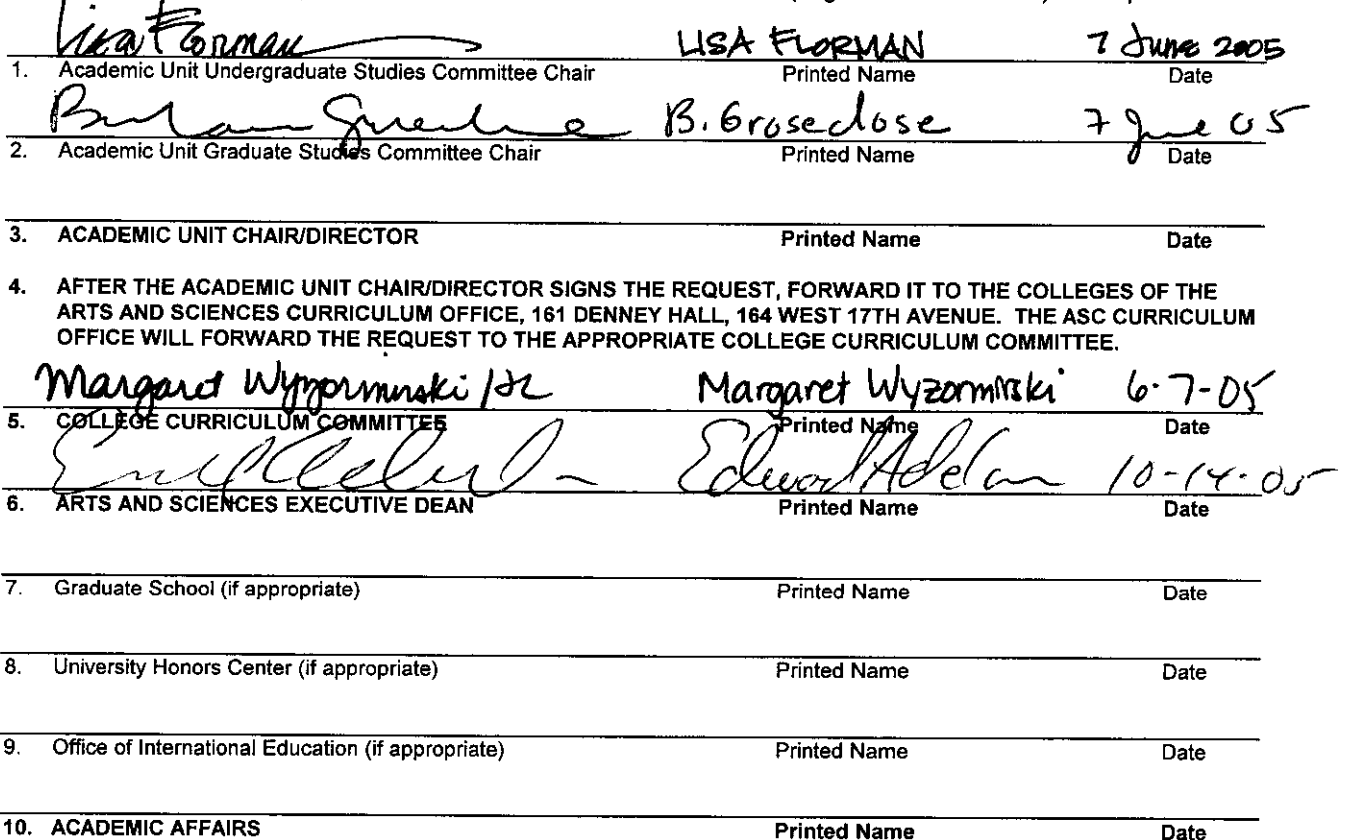 Lisa Florman LISA FLORMAN 7 June 2005
1. Academic Unit Undergraduate Studies Committee Chair Printed Name Date
B. Grosedose 7 June 05
2. Academic Unit Graduate Studies Committee Chair Printed Name Date
3. ACADEMIC UNIT CHAIR/DIRECTOR Printed Name Date
4. AFTER THE ACADEMIC UNIT CHAIR/DIRECTOR SIGNS THE REQUEST, FORWARD IT TO THE COLLEGES OF THE
ARTS AND SCIENCES CURRICULUM OFFICE, 161 DENNEY HALL, 164 WEST 17TH AVENUE. THE ASC CURRICULUM
OFFICE WILL FORWARD THE REQUEST TO THE APPROPRIATE COLLEGE CURRICULUM COMMITTEE.
Margaret Wyzormirski Margaret Wyzormirski 6-7-05
5. COLLEGE CURRICULUM COMMITTEE Printed Name Date
Edward Adelson 10-14-05
6. ARTS AND SCIENCES EXECUTIVE DEAN Printed Name Date
7. Graduate School (if appropriate) Printed Name Date
8. University Honors Center (if appropriate) Printed Name Date
9. Office of International Education (if appropriate) Printed Name Date
10. ACADEMIC AFFAIRS Printed Name Date